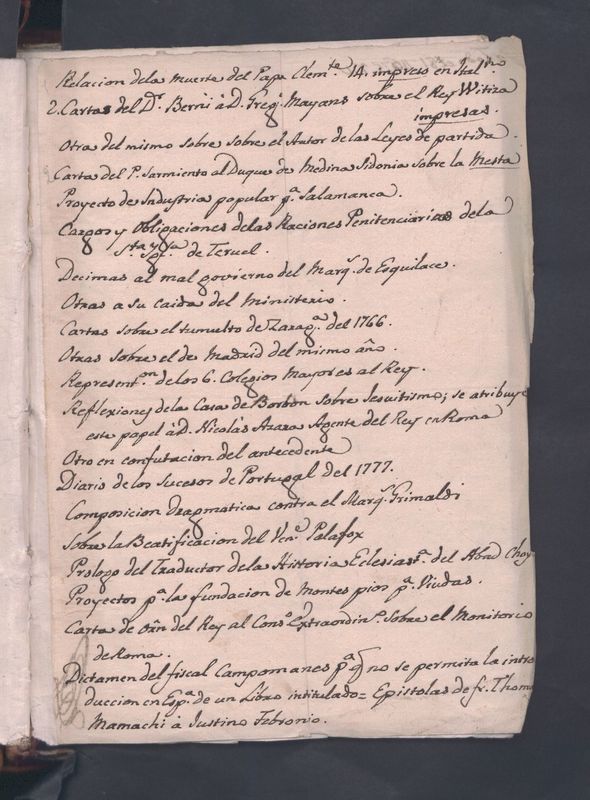 Relacion dela muerte del Papa Clem.te 14. impreso en Ital.no
2. Cartas del Dr. Berni à D. Greg.o Mayans sobre el Rey Witiza
impresas.
Otra del mismo sobre sobre el Autor de las Leyes de partida.
Carta del P. Sarmiento al Duque de Medina Sidonia sobre la Mesta
Proyecto de Industria popular p.a Salamanca.
Cargos y Obligaciones delas Raciones Penitenciarias dela
S.ta Ygl.a de Teruel.
Decimas al mal govierno del Marq.s de Esquilace.
Otras a su caida del Ministerio.
Cartas sobre el tumulto de Zarag.a del 1766.
Otras sobre el de Madrid del mismo año.
Represent.on de los 6. Colegios Mayores al Rey.
Reflexiones dela Casa de Borbon sobre Jesuitismo; se atribuye
este papel à D. Nicolás Azara Agente del Rey en Roma
Otro en confutacion del antecedente
Diario de los Sucesos de Portugal del 1777.
Composicion dragmatica contra el Marq.s Grimaldi
Sobre la Beatificacion del Ven.e Palafox
Prologo del Traductor dela Historia Eclesiast.a del Abad Choy
Proyectos p.a la fundacion de Montes pios p.a Viudas.
Carta de orn del Rey al Cons.o Extraordin.o Sobre el Monitorio
de Roma.
Dictamen del fiscal Campomanes p.a q no se permita la intro
duccion en Esp.a de un Libro intitulado = Epistolas de fr. Thom
Mamachi à Justino Febronio.